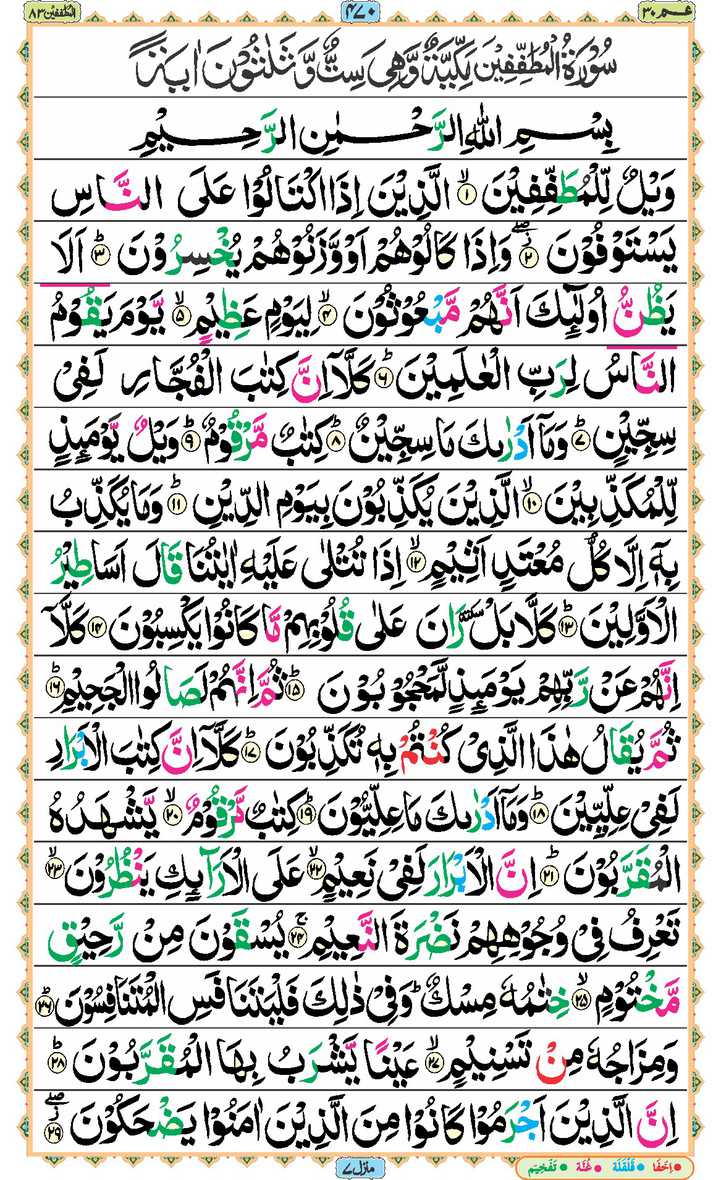 عمّ ٣٠ ٤٧٠ المطففين ٨٣
سُوْرَةُ الْمُطَفِّفِيْنَ مَكِّيَّةٌ وَّهِيَ سِتٌّ وَّثَلٰثُوْنَ اٰيَةً
بِسْمِ اللّٰهِ الرَّحْمٰنِ الرَّحِيْمِ
وَيْلٌ لِّلْمُطَفِّفِيْنَ ۙ‏﴿۱﴾ الَّذِيْنَ اِذَا اكْتَالُوْا عَلَى النَّاسِ
يَسْتَوْفُوْنَ ۖ‏﴿۲﴾ وَاِذَا كَالُوْهُمْ اَوْ وَّزَنُوْهُمْ يُخْسِرُوْنَ ؕ‏﴿۳﴾ اَلَا
يَظُنُّ اُولٰٓئِكَ اَنَّهُمْ مَّبْعُوْثُوْنَ ۙ‏﴿۴﴾ لِيَوْمٍ عَظِيْمٍ ۙ‏﴿۵﴾ يَّوْمَ يَقُوْمُ
النَّاسُ لِرَبِّ الْعٰلَمِيْنَ ؕ‏﴿۶﴾ كَلَّاۤ اِنَّ كِتٰبَ الْفُجَّارِ لَفِيْ
سِجِّيْنٍ ؕ‏﴿۷﴾ وَمَاۤ اَدْرٰىكَ مَا سِجِّيْنٌ ؕ‏﴿۸﴾ كِتٰبٌ مَّرْقُوْمٌ ؕ‏﴿۹﴾ وَيْلٌ يَّوْمَئِذٍ
لِّلْمُكَذِّبِيْنَ ۙ‏﴿۱۰﴾ الَّذِيْنَ يُكَذِّبُوْنَ بِيَوْمِ الدِّيْنِ ؕ‏﴿۱۱﴾ وَمَا يُكَذِّبُ
بِهٖۤ اِلَّا كُلُّ مُعْتَدٍ اَثِيْمٍ ۙ‏﴿۱۲﴾ اِذَا تُتْلٰى عَلَيْهِ اٰيٰتُنَا قَالَ اَسَاطِيْرُ
الْاَوَّلِيْنَ ؕ‏﴿۱۳﴾ كَلَّا بَلْ ٚ رَانَ عَلٰى قُلُوْبِهِمْ مَّا كَانُوْا يَكْسِبُوْنَ ‏﴿۱۴﴾ كَلَّاۤ
اِنَّهُمْ عَنْ رَّبِّهِمْ يَوْمَئِذٍ لَّمَحْجُوْبُوْنَ ؕ‏﴿۱۵﴾ ثُمَّ اِنَّهُمْ لَصَالُوا الْجَحِيْمِ ؕ‏﴿۱۶﴾
ثُمَّ يُقَالُ هٰذَا الَّذِيْ كُنْتُمْ بِهٖ تُكَذِّبُوْنَ ؕ‏﴿۱۷﴾ كَلَّاۤ اِنَّ كِتٰبَ الْاَبْرَارِ
لَفِيْ عِلِّيِّيْنَ ؕ‏﴿۱۸﴾ وَمَاۤ اَدْرٰىكَ مَا عِلِّيُّوْنَ ؕ‏﴿۱۹﴾ كِتٰبٌ مَّرْقُوْمٌ ۙ‏﴿۲۰﴾ يَّشْهَدُهُ
الْمُقَرَّبُوْنَ ؕ‏﴿۲۱﴾ اِنَّ الْاَبْرَارَ لَفِيْ نَعِيْمٍ ۙ‏﴿۲۲﴾ عَلَى الْاَرَآئِكِ يَنْظُرُوْنَ ۙ‏﴿۲۳﴾
تَعْرِفُ فِيْ وُجُوْهِهِمْ نَضْرَةَ النَّعِيْمِ ۚ‏﴿۲۴﴾ يُسْقَوْنَ مِنْ رَّحِيْقٍ
مَّخْتُوْمٍ ۙ‏﴿۲۵﴾ خِتٰمُهٗ مِسْكٌ ؕ وَفِيْ ذٰلِكَ فَلْيَتَنَافَسِ الْمُتَنَافِسُوْنَ ؕ‏﴿۲۶﴾
وَمِزَاجُهٗ مِنْ تَسْنِيْمٍ ۙ‏﴿۲۷﴾ عَيْنًا يَّشْرَبُ بِهَا الْمُقَرَّبُوْنَ ؕ‏﴿۲۸﴾
اِنَّ الَّذِيْنَ اَجْرَمُوْا كَانُوْا مِنَ الَّذِيْنَ اٰمَنُوْا يَضْحَكُوْنَ ۖ‏﴿۲۹﴾
منزل ٧ • اِخْفَا • قَلْقَلَة • غُنَّة • تَفْخِيْم